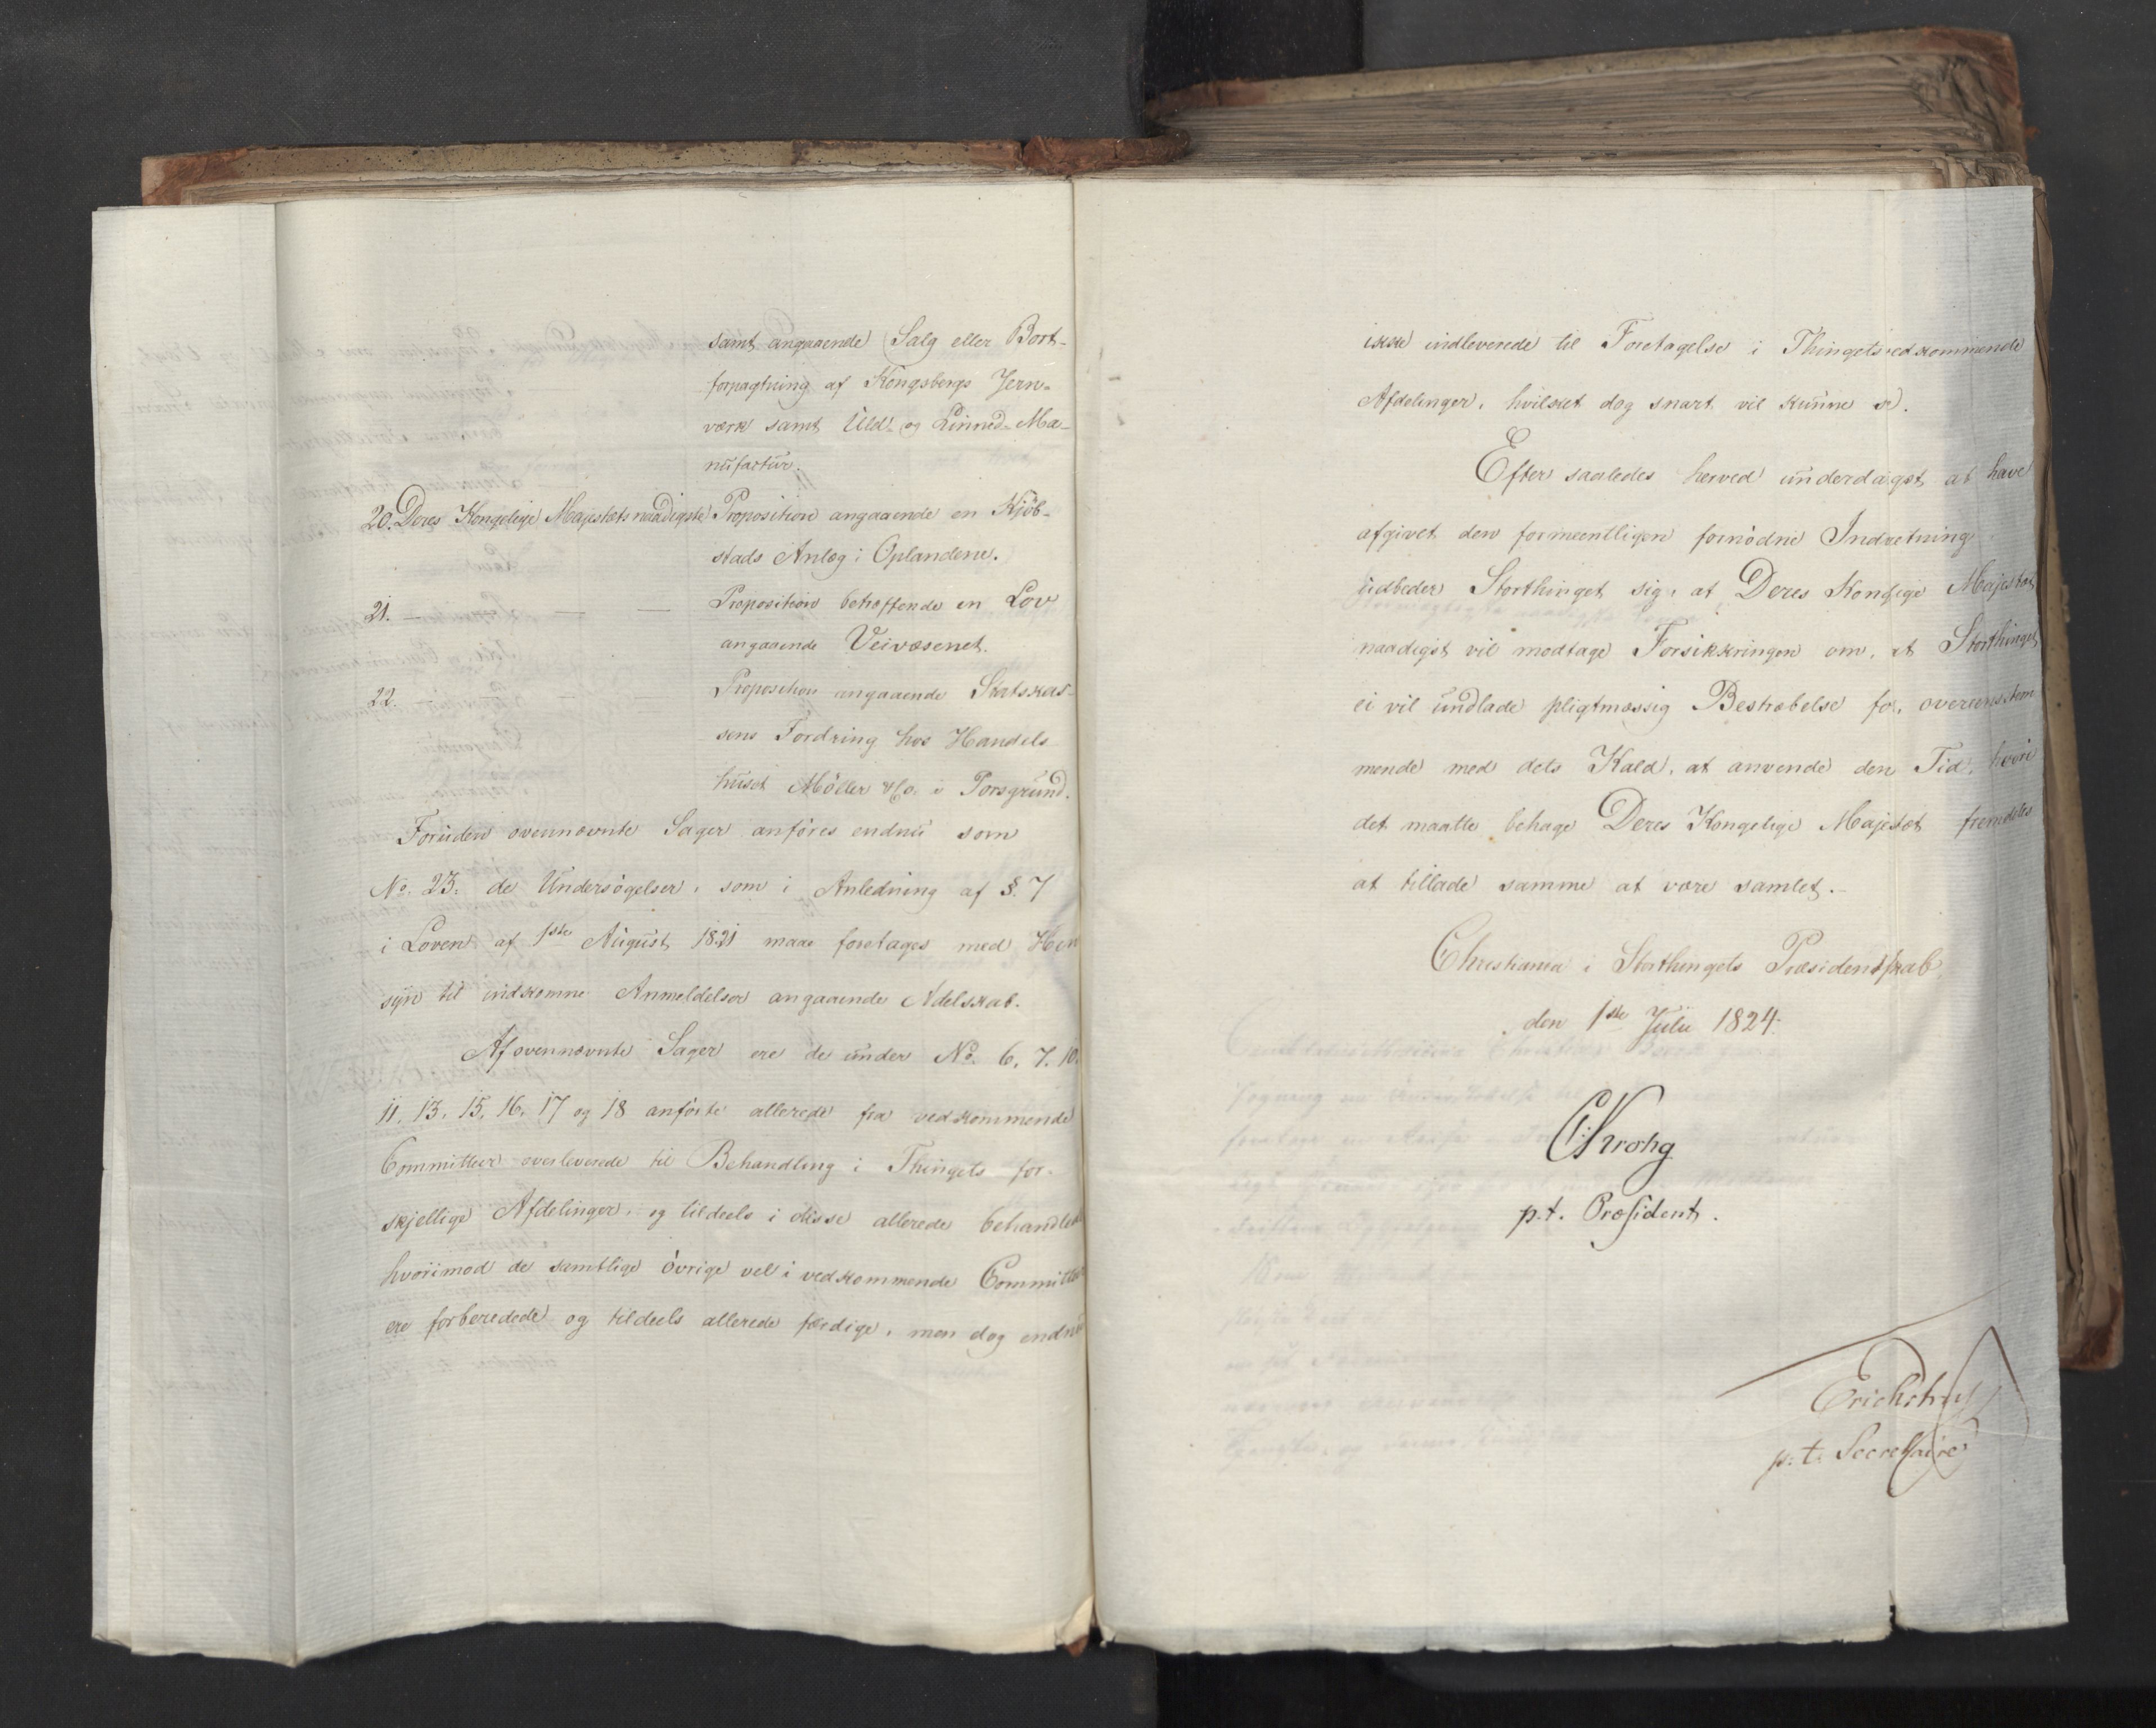 samt angaaende Salg eller Bort-
forpagtning af Kongsbergs Jern-
værk samt Uld- og Linned-Ma-
nufactur.
20. Deres Kongelige Majestæts naadigste Proposition angaaende en Kjöb-
stads Anlæg i Oplandene.
21. — — — Proposition betræffende en Lov
angaaende Veivæsenet.
22. — — Proposition angaaende Statskas-
sens Fordring hos Handels
huset Möller & Co. i Porsgrund.
Foruden ovennævnte Sager anföres endnu som
No. 23. de Undersögelser, som i Anledning af §. 7
i Loven af 1ste August 1821 maae foretages med Hen
syn til indkomne Anmeldelser angaaende Adelskab.
Af ovennævnte Sager ere de under No. 6, 7. 10.
11. 13. 15. 16. 17 og 18 anförte allerede fra vedkommende
Committeer overleverede til Behandling i Thingets for-
skjellige Afdelinger, og tildeels i disse allerede behandlede
hvorimod de samtlige övrige vel i vedkommende Committeer
ere forberedede og tildeels allerede færdige, men dog endnu
ikke indleverede til Foretagelse i Thingets vedkommende
Afdelinger, hvilket dog snart vil kunne skee.
Efter saaledes herved underdanigst at have
afgivet den formeentligen fornödne Indretning
udbeder Storthinget sig, at Deres Konglige Majestæt
naadigst vil modtage Forsikkringen om, at Storthinget
ei vil undlade pligtmæssig Bestræbelse for, overeenstem
mende med dets Kald, at anvende den Tid, hvori
det maatte behage Deres Kongelige Majestæt fremdeles
at tillade samme at være samlet.
Christiania i Storthingets Præsidentskab
den 1ste Julii 1824.
CKrohg
p.t. Præsident.
p.t. Secretaire